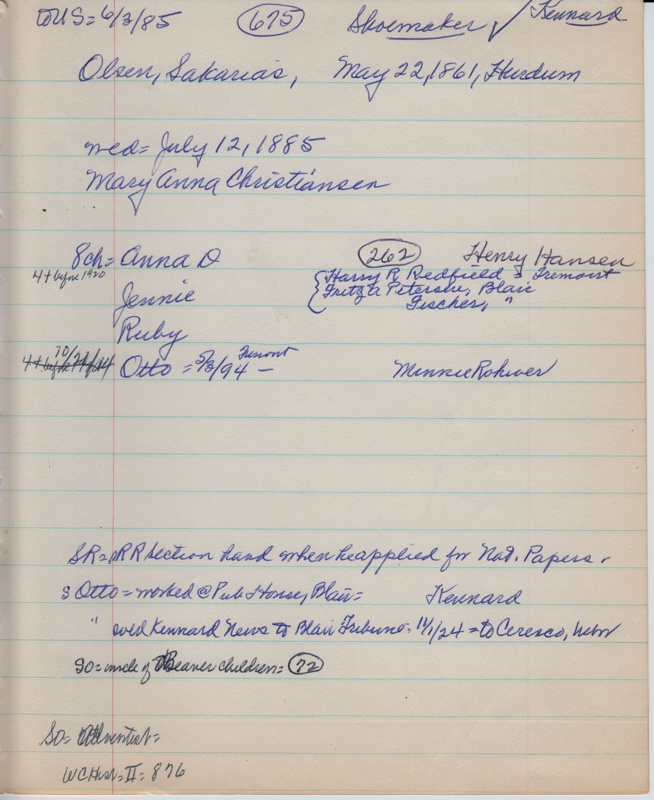 to US = 6/3/85 675 Shoemaker ✓ Kennard
Olsen, Sakarias, May 22, 1861, Hurdum
med = July 12, 1885
Mary Anna Christiansen
8ch = Anna D 262 Henry Hansen
4 + before 1920 Harry R Redfield = Fremont
Jennie Fritz A Petersen, Blair
Fischer, "
Ruby
Otto = 5/3/94 Fremont — Minnie Rohwer
SR = RR Section hand when he applied for Nat. Papers.
s Otto = worked @ Pub House, Blair = Kennard
" sold Kennard News to Blair Tribune = 11/1/24 = to Ceresco, Nebr
SO = uncle of Beaver children = 72
SO = Adventist =
WCHist = II = 876